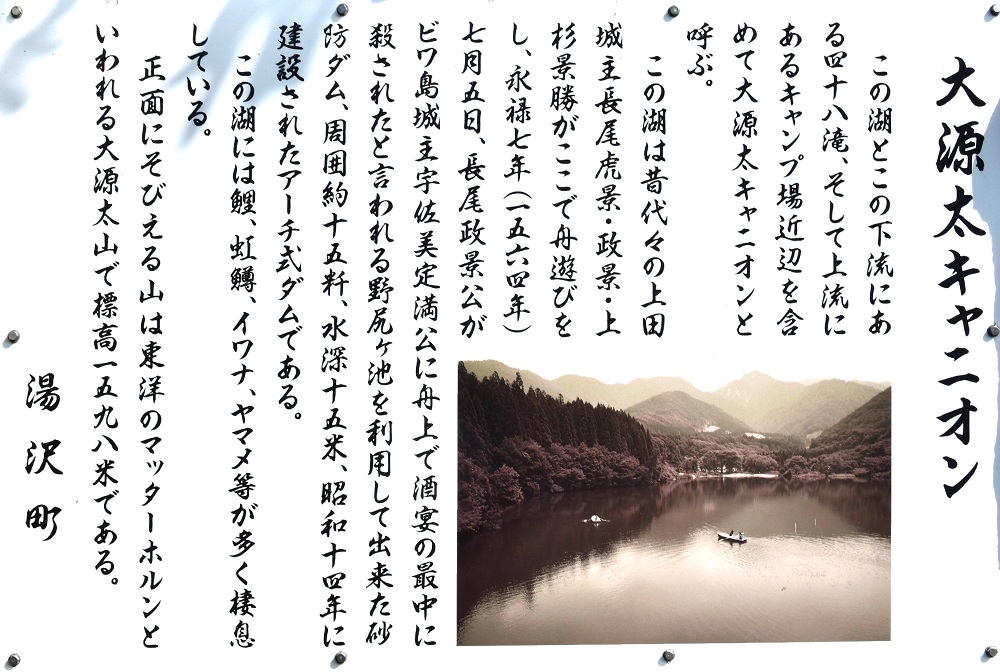 大源太キャニオン
この湖とこの下流にあ
る四十八滝、そして上流に
あるキャンプ場近辺を含
めて大源太キャニオンと
呼ぶ。
この湖は昔代々の上田
城主長尾虎景・政景・上
杉景勝がここで舟遊びを
し、永禄七年（一五六四年）
七月五日、長尾政景公が
ビワ島城主宇佐美定満公に舟上で酒宴の最中に
殺されたと言われる野尻ヶ池を利用して出来た砂
防ダム、周囲約十五粁、水深十五米、昭和十四年に
建設されたアーチ式ダムである。
この湖には鯉、虹鱒、イワナ、ヤマメ等が多く棲息
している。
正面にそびえる山は東洋のマッターホルンと
いわれる大源太山で標高一五九八米である。
湯沢町